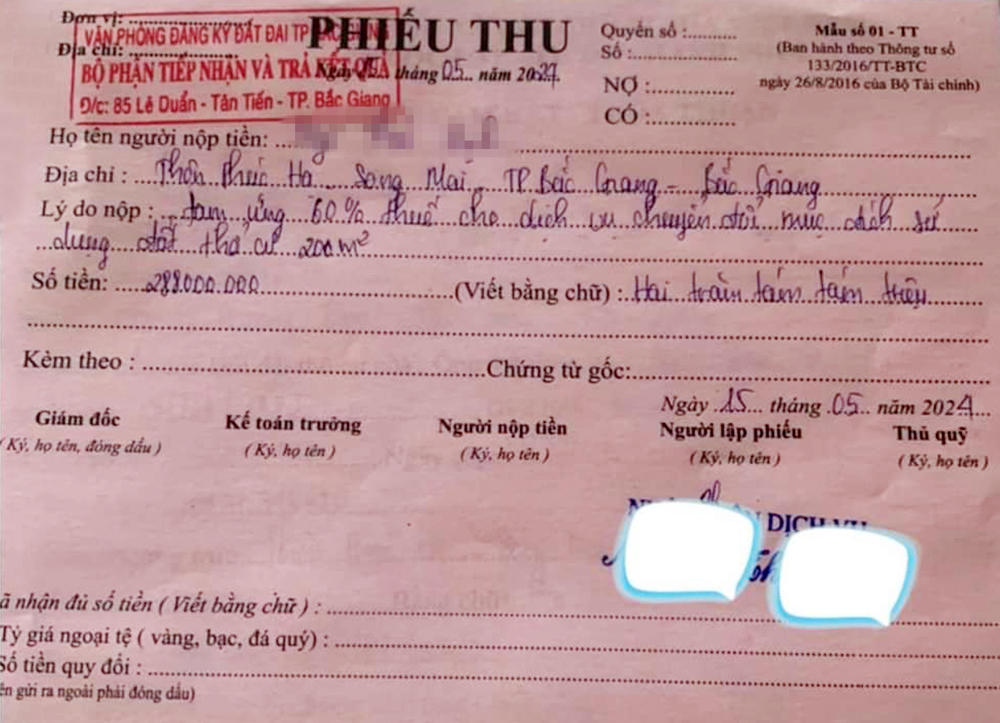 Đơn vị:
VĂN PHÒNG ĐĂNG KÝ ĐẤT ĐAI TP BẮC GIANG
Địa chỉ:
BỘ PHẬN TIẾP NHẬN VÀ TRẢ KẾT QUẢ
Đ/c: 85 Lê Duẩn - Tân Tiến - TP. Bắc Giang
PHIẾU THU
Ngày 15 tháng 05 năm 2024
Quyển số :
Số :
NỢ :
CÓ :
Mẫu số 01 - TT
(Ban hành theo Thông tư số
133/2016/TT-BTC
ngày 26/8/2016 của Bộ Tài chính)
Họ tên người nộp tiền:
Địa chỉ : Thôn Phúc Hạ Song Mai TP Bắc Giang - Bắc Giang
Lý do nộp : tạm ứng 60% thuế cho dịch vụ chuyển đổi mục đích sử
dụng đất thổ cư 200m²
Số tiền: 288.000.000 (Viết bằng chữ) : Hai trăm tám tám triệu
Kèm theo : Chứng từ gốc:
Ngày 15 tháng 05 năm 2024
Giám đốc Kế toán trưởng Người nộp tiền Người lập phiếu Thủ quỹ
( Ký, họ tên, đóng dấu ) ( Ký, họ tên ) ( Ký, họ tên ) ( Ký, họ tên ) ( Ký, họ tên )
DỊCH VỤ
ã nhận đủ số tiền ( Viết bằng chữ ) :
Tỷ giá ngoại tệ ( vàng, bạc, đá quý) :
Số tiền quy đổi :
ên gửi ra ngoài phải đóng dấu)